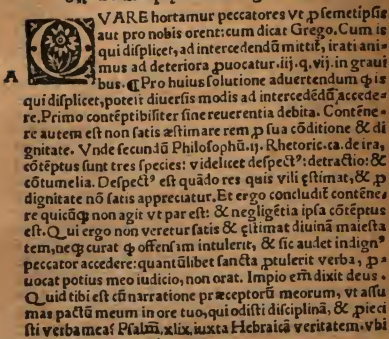 QVARE hortamur peccatores vt ꝓ semetipsis
aut pro nobis orent: cum dicat Grego. Cum is
qui displicet, ad intercedendū mittit͛, irati ani-
mus ad deteriora ꝓuocatur. iij. q. vij. in graui
A
bus. ¶ Pro huius solutione aduertendum ꝙ is
qui displicet, potest diuersis modis ad intercedēdū accede-
re. Primo contēptibiliter sine reuerentia debita. Contēne-
re autem est non satis æstimare rem ꝓ sua cōditione & di
gnitate. Vnde secundū Philosophū. ij. Rhetoric. ca. de ira,
cōtēptus sunt tres species: videlicet despectꝰ: detractio: &
cōtumelia. Despectꝰ est quādo res quis vili ęstimat, & ꝓ
dignitate nō satis appreciatur. Et ergo concludit contēne
re quicūꝙ non agit vt par est: & negligētia ipsa cōtēptus
est. Qui ergo non veretur satis & ęstimat diuinā maiesta
tem, neꝙ curat ꝙ offensam intulerit, & sic audet indignꝰ
peccator accedere: quantūlibet sancta ꝓtulerit verba, ꝓ-
uocat potius meo iudicio, non orat. Impio em̄ dixit deus.
Quid tibi est cū narratione præceptorū meorum, vt assu
mas pactū meum in ore tuo, qui odisti disciplinā, & proieci
sti verba mea? Psalm̄. xlix. iuxta Hebraicā veritatem. vbi